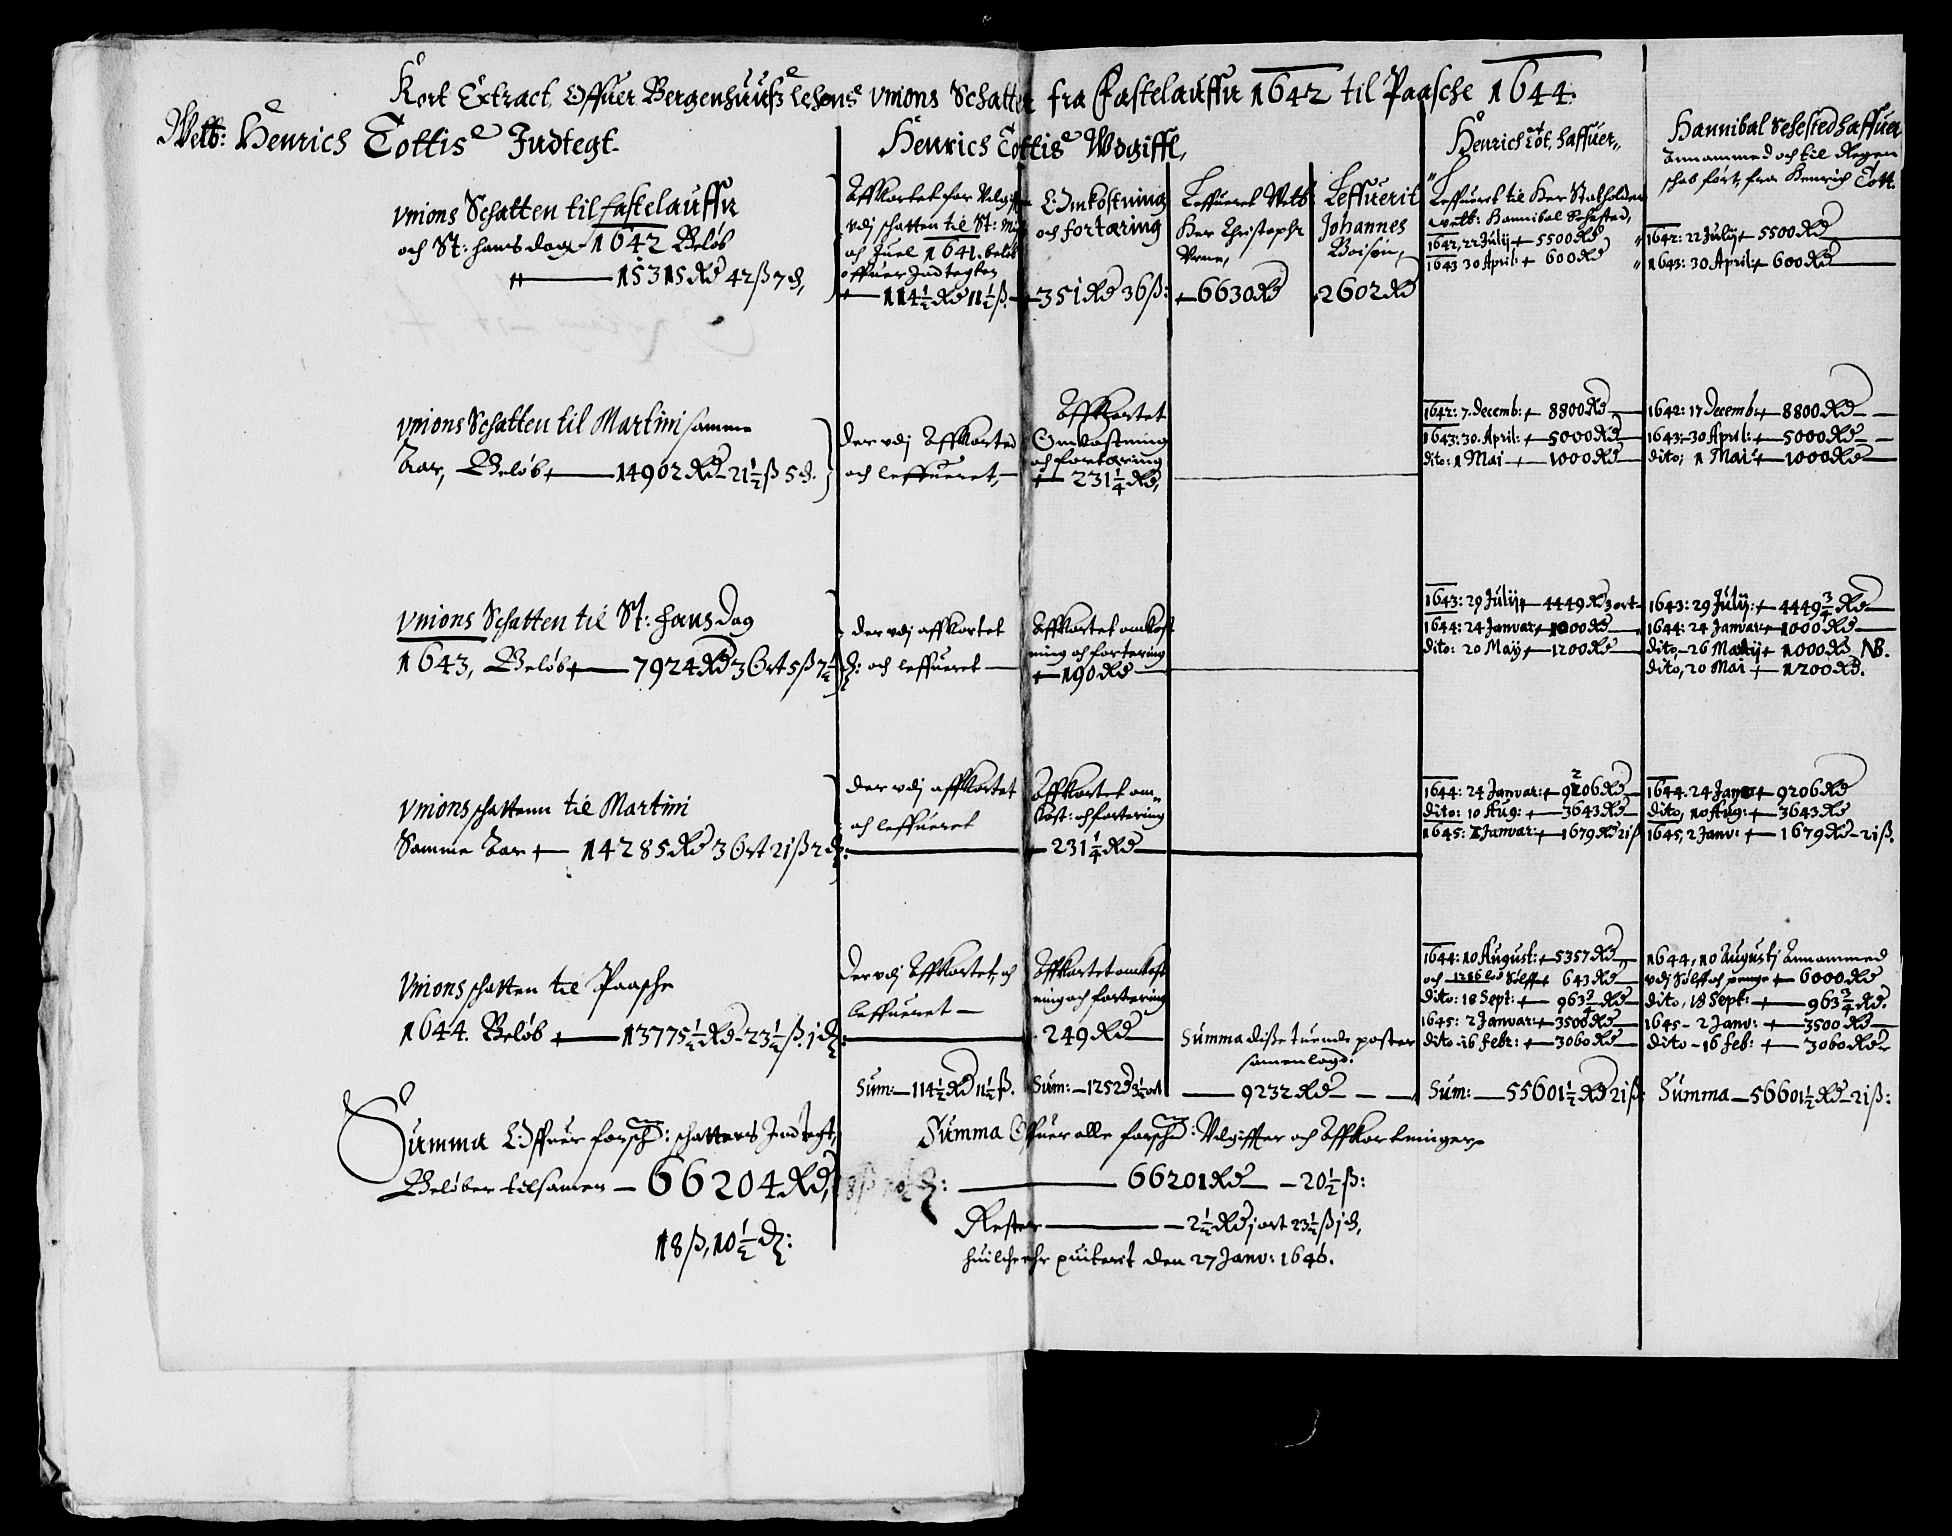 Kort Extract Offuer Bergenhuuß lehens vnions Schatter fra Fastelauffn 1642 til Paasche 1644.
Welb: Henrich Tottis Indtegt
vnions Schatten til fastelauffn
och St: hans dag 1642 Beløb
15315 Rd 42 ß 7 d,
vnions Schatten til Martini samme
Aar, Beløb 14902 Rd 21½ ß 5 d.
vnions Schatten til St: hans dag
1643, Beløb 7924 Rd 3 Ort 5 ß 7½ d:
Vnions schattenn til Martini
Samme Aar 14285 Rd 3 Ort 21 ß 2 d:
Vnions schatten til Paasche
1644. Beløb 13775½ Rd 23½ ß. j d
Summa Offuer forschne: schatters Indtegt,
Beløber tilsamen 66204 Rd,
18 ß, 10½ d:
Henrich Tottis Vdgifft,
Affkortet for Vdgifft
vdj schatten til St: M
och Juel 1641. beløb
offuer Indtegten
114½ Rd 11½ ß.
der vdj Affkorted
och leffueret,
der vdj affkortet
och leffueret
der vdj affkortet
och leffueret
der vdj Affkortet, och
leffueret
Sum: 114½ Rd 11½ ß.
Omkostning
och fortæring
351 Rd 36 ß:
Affkortet
Omkostning
och fortæring
231¼ Rd,
Affkortet omkost
ning och fortering
190 Rd
Affkortet om
kost: och fortering
231¼ Rd
Affkortet omkost
ning och fortering
249 Rd
Sum: 1252 Rd 3½ ort
Leffueret Welb:
Her Christopher
Vrne,
6630 Rd
Leffuerit
Johannes
Boisøn,
2602 Rd
Summa disse tuende poster
samenlagd.
9232 Rd
Henrich Tot haffuer
Leffueret til Her Statholder
welb: Hannibal Sehested,
1642, 22 Julij 5500 Rd
1643 30 April: 600 Rd
1642: 7. Decemb: 8800 Rd
1643: 30. April: 5000 Rd
dito: 1 Mai 1000 Rd
1643: 29 Julij 4449 Rd 3 ort
1644: 24 Januar: 1000 Rd
dito: 20 Maij 1200 Rd
1644: 24 Januar: 9206 Rd
dito: 10 Aug: 3643 Rd
1645: 2 Januar: 1679 Rd 21 ß
1644: 10 August: 5357 Rd
och 1286 lod Sølff 643 Rd
dito: 18 Sept: 963¾ Rd
1645: 2 Januar: 3500 Rd
dito 16 Febr: 3060 Rd
Sum: 55601½ Rd 21 ß
Hannibal Sehested haffuer
Annammed och til Regen
schab ført, fra Henrich Tott.
1642: 22 Julij 5500 Rd
1643: 30 April: 600 Rd
1642: 17 Decemb: 8800 Rd
1643: 30 April: 5000 Rd
dito; 1 Mai 1000 Rd
1643: 29 Julij: 4449¾ Rd
1644: 24 Januar 1000 Rd
dito 26 Maij 1000 Rd NB.
dito, 20 Mai 1200 Rd.
1644. 24 Janu 9206 Rd
dito, 10 Aug: 3643 Rd
1645, 2 Janv: 1679 Rd 21 ß.
1644, 10 Augustj Annammed
vdj Sølff och penge 6000 Rd
dito, 18 Sept: 963¾ Rd:
1645 2 Janv: 3500 Rd
dito 16 feb: 3060 Rd
Summa 56601½ Rd 21 ß:
Summa Offuer alle forschne: Vdgiffter och Affkortninger
66201 Rd 20½ ß:
Rester 2½ Rd j ort 23½ ß j d,
huilche ehr quiterit den 27 Janv: 1646.